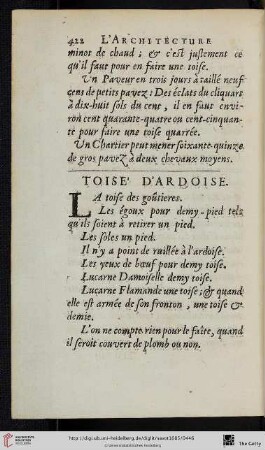 422 L'ARCHITECTURE
minot de chaud ; & c'est justement ce
qu'il faut pour en faire une toise.
Un Paveur en trois jours à taillé neuf
cens de petits pavez : Des éclats du cliquart
à dix-huit sols du cent, il en faut envi-
ron cent quarante-quatre ou cent-cinquan-
te pour faire une toise quarrée.
Un Chartier peut mener soixante-quinze
de gros pavez à deux chevaux moyens.
TOISE' D'ARDOISE.
LA toise des goûtieres.
Les égoux pour demy-pied telz
qu'ils soient à retirer un pied.
Les soles un pied.
Il n'y a point de ruillée à l'ardoise.
Les yeux de bœuf pour demy toise.
Lucarne Damoiselle demy toise.
Lucarne Flamande une toise ; & quand
elle est armée de son fronton, une toise &
demie.
L'on ne compte rien pour le faîte, quand
il seroit couvert de plomb ou non.